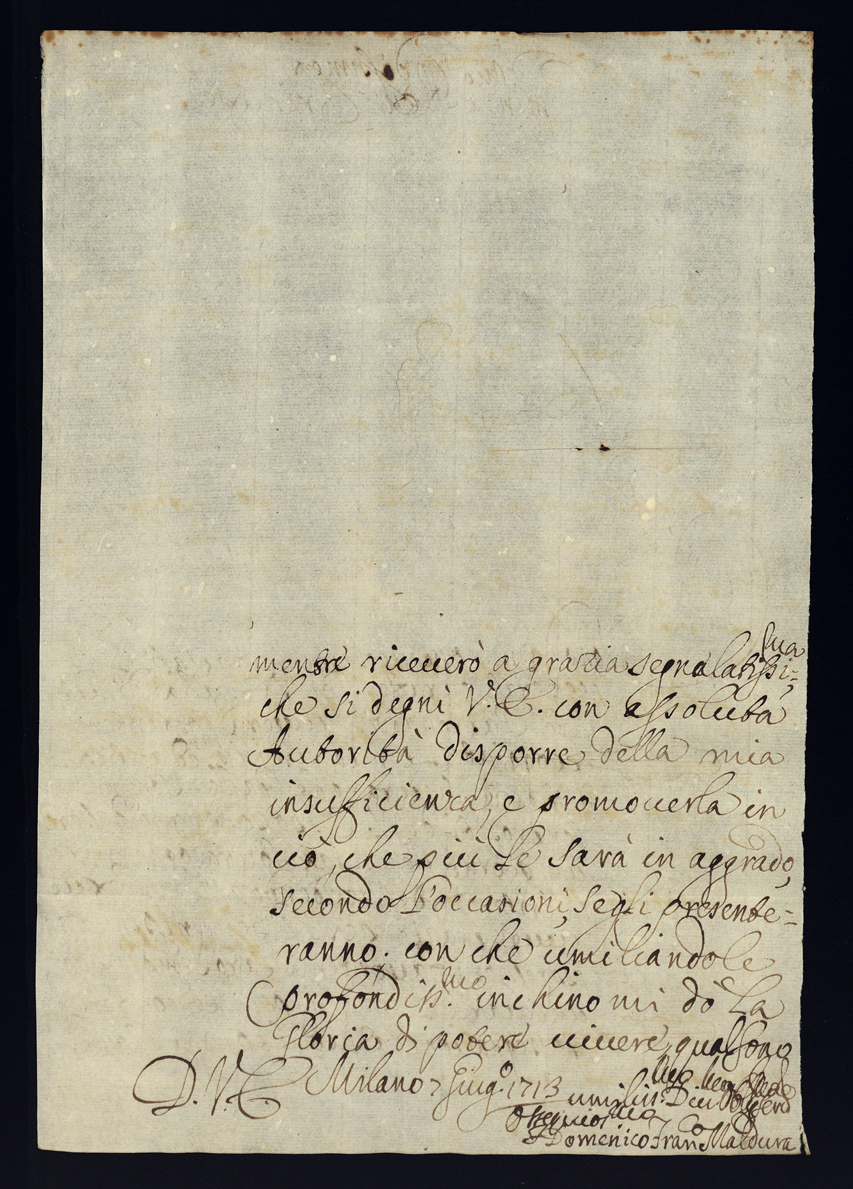 mentre riceuerò a grazia segnalatissi=ma
che si degni V.E. con assoluta
Autorità disporre della mia
insufficienza, e promouerla in
ciò, che più Le sarà in aggrado,
secondo l'occasioni, se gli presente=
ranno. con che umiliandole
profondiss.mo inchino mi dò la
Gloria di potere uiuere, qual sono
D. V. E. Milano 7 Giug.o 1713
umiliss.mo Diu.mo
Osseq.mo
Domenico Fran.co Maldura